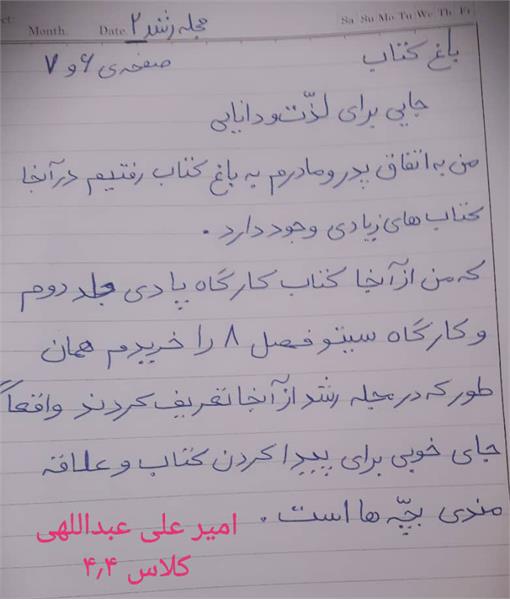 Month. Date. مجله رشد ۲ Sa Su Mo Tu We Th Fr
باغ کتاب صفحه‌ی ۶ و ۷
جایی برای لذّت و دانایی
من به اتفاق پدر و مادرم به باغ کتاب رفتیم در آنجا
کتاب های زیادی وجود دارد .
که من از آنجا کتاب کارگاه پادی جلد دوم
و کارگاه سیتو فصل ۸ را خریدم همان
طور که در مجله رشد از آنجا تعریف کردند واقعاً
جای خوبی برای پیدا کردن کتاب و علاقه
مندی بچّه ها است .
امیر علی عبداللهی
کلاس ۴٫۴